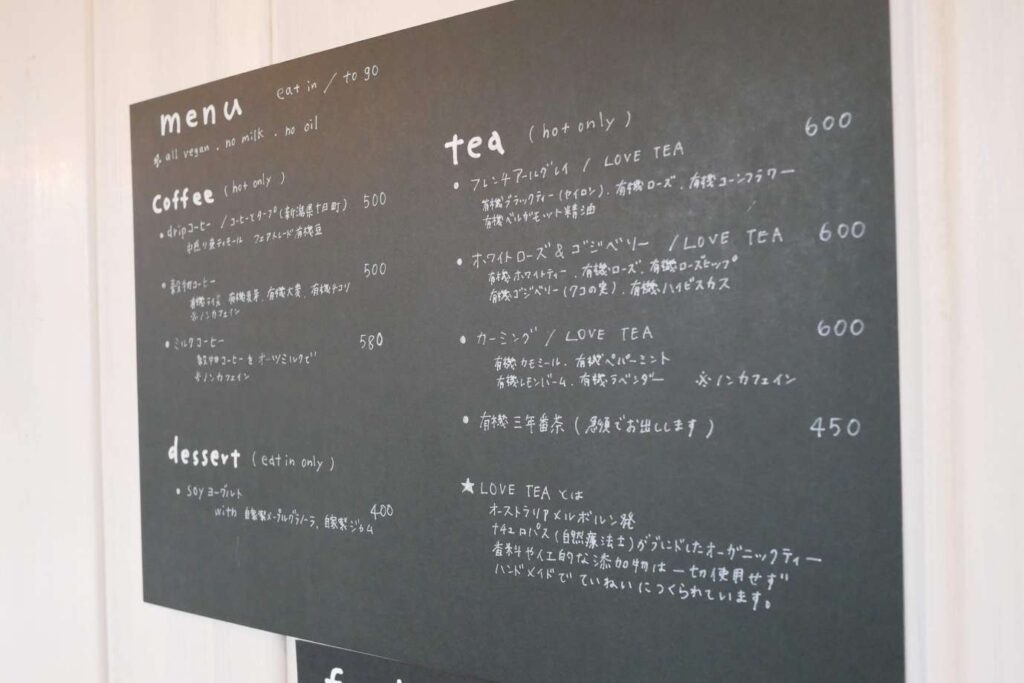 menu eat in / to go
※ all vegan . no milk . no oil
coffee (hot only)
• dripコーヒー /コーヒーとタープ(新潟県十日町) 500
中煎り東ティモール フェアトレード有機豆
• 穀物コーヒー 500
有機ライ麦、有機大麦、有機チコリ
※ノンカフェイン
• ミルクコーヒー 580
穀物コーヒーを オーツミルクで
※ノンカフェイン
dessert (eat in only)
• soyヨーグルト
with 自家製メープルグラノーラ、自家製ジャム 400
tea (hot only)
• フレンチアールグレイ / LOVE TEA 600
有機ブラックティー(セイロン)、有機ローズ、有機コーンフラワー
有機ベルガモット精油
• ホワイトローズ & ゴジベリー /LOVE TEA 600
有機ホワイトティー、有機ローズ、有機ローズヒップ
有機ゴジベリー(クコの実)、有機ハイビスカス
• カーミング / LOVE TEA 600
有機カモミール、有機ペパーミント
有機レモンバーム、有機ラベンダー ※ノンカフェイン
• 有機三年番茶 (急須でお出しします) 450
★ LOVE TEA とは
オーストラリアメルボルン発
ナチュロパス(自然療法士)がブレンドしたオーガニックティー
香料や人工的な添加物は一切使用せず
ハンドメイドで ていねいにつくられています。